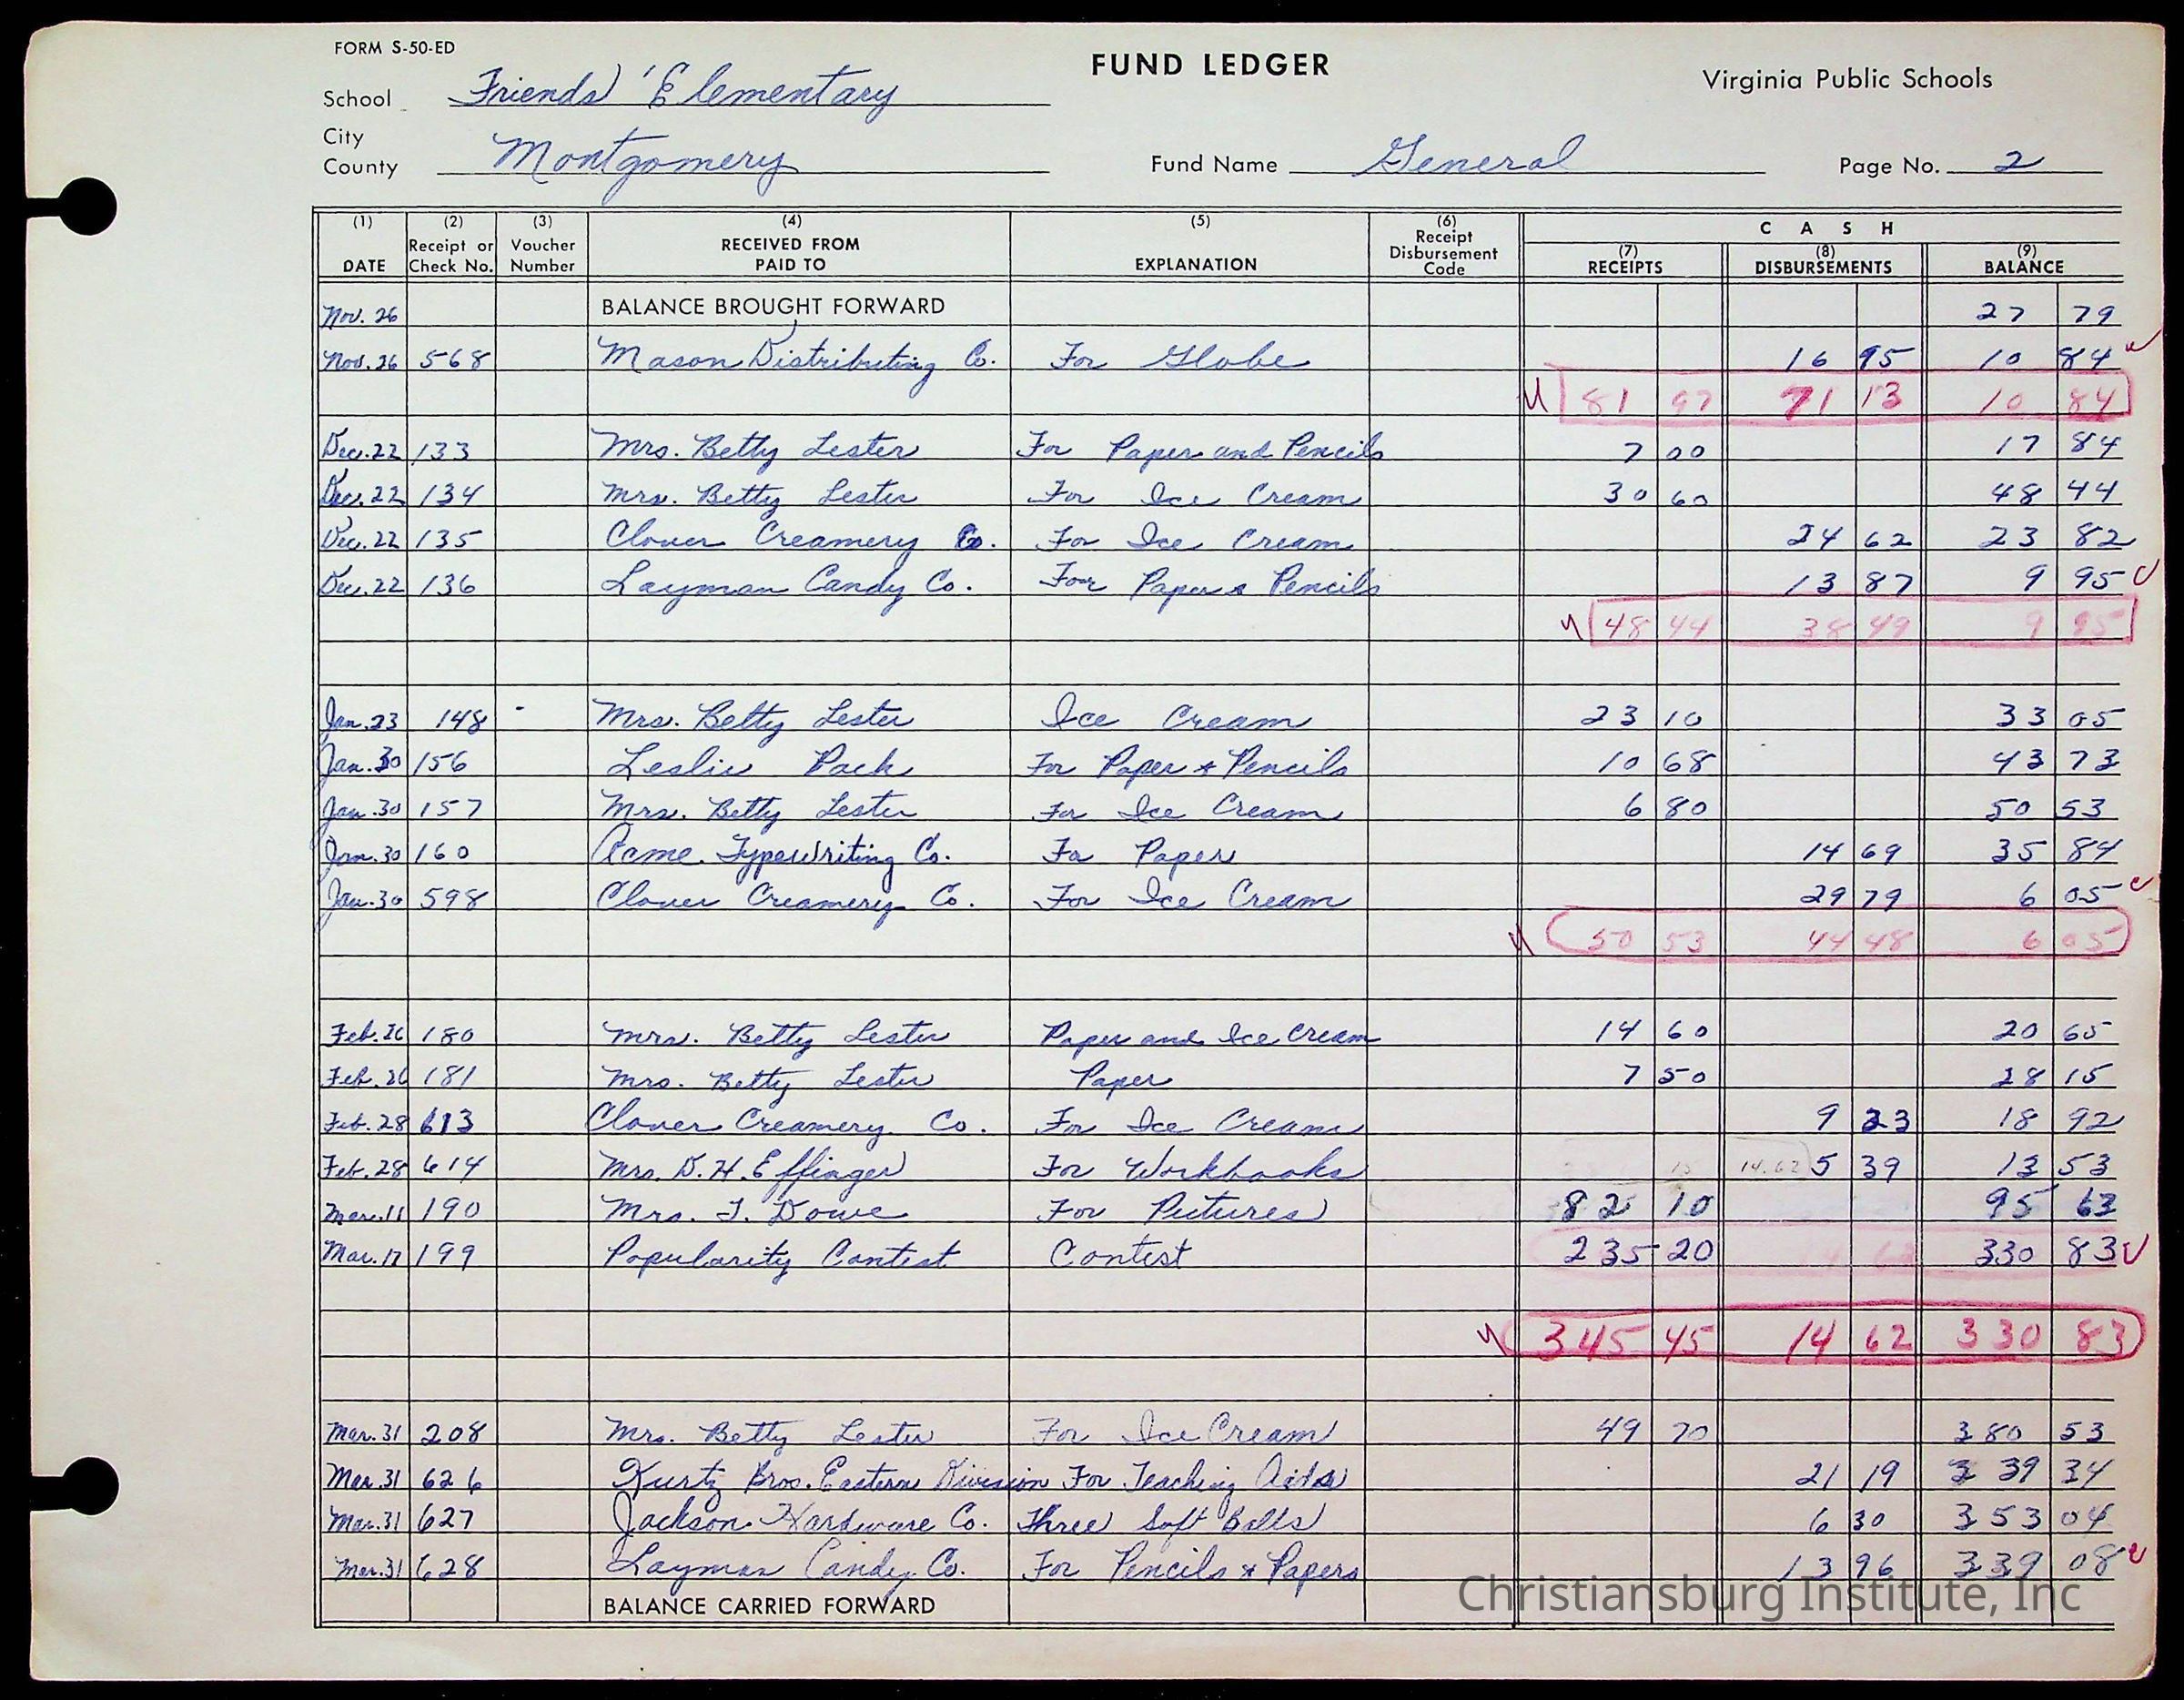 FORM S-50-ED
FUND LEDGER
Virginia Public Schools
School Friends' Elementary
City
County Montgomery Fund Name General Page No. 2
(1) (2) (3) (4) (5) (6) C A S H
DATE Receipt or Check No. Voucher Number RECEIVED FROM PAID TO EXPLANATION Receipt Disbursement Code (7) RECEIPTS (8) DISBURSEMENTS (9) BALANCE
Nov. 26 BALANCE BROUGHT FORWARD 27 79
Nov. 26 568 Mason Distributing Co. For Globe 16 95 10 84
81 97 71 13 10 84
Dec. 22 133 Mrs. Betty Lester For Paper and Pencils 7 00 17 84
Dec. 22 134 Mrs. Betty Lester For Ice Cream 30 60 48 44
Dec. 22 135 Clover Creamery Co. For Ice Cream 24 62 23 82
Dec. 22 136 Layman Candy Co. For Paper & Pencils 13 87 9 95
48 44 38 49 9 95
Jan. 23 148 Mrs. Betty Lester Ice Cream 23 10 33 05
Jan. 30 156 Leslie Pack For Paper & Pencils 10 68 43 73
Jan. 30 157 Mrs. Betty Lester For Ice Cream 6 80 50 53
Jan. 30 160 Acme Typewriting Co. Fo Paper 14 69 35 84
Jan. 30 598 Clover Creamery Co. For Ice Cream 29 79 6 05
50 53 44 48 6 05
Feb. 26 180 Mrs. Betty Lester Paper and Ice Cream 14 60 20 65
Feb. 26 181 Mrs. Betty Lester Paper 7 50 28 15
Feb. 28 613 Clover Creamery Co. For Ice Cream 9 23 18 92
Feb. 28 614 Mrs. D. H. Effinger For Workbooks 14.62 5 39 13 53
Mar. 11 190 Mrs. T. Dowe For Pictures 82 10 95 63
Mar. 17 199 Popularity Contest Contest 235 20 330 83
345 45 14 62 330 83
Mar. 31 208 Mrs. Betty Lester For Ice Cream 49 70 380 53
Mar. 31 626 Kurtz Bros. Eastern Division For Teaching Aids 21 19 339 34
Mar. 31 627 Jackson Hardware Co. Three Soft Balls 6 30 353 04
Mar. 31 628 Layman Candy Co. For Pencils & Papers 13 96 339 08
BALANCE CARRIED FORWARD
Christiansburg Institute, Inc